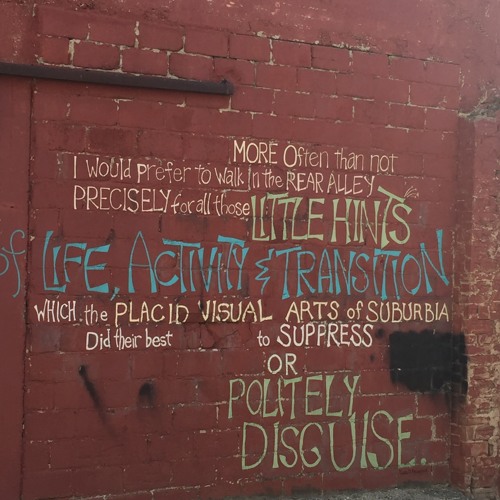 MORE Often than not
I would prefer to walk in the REAR ALLEY
PRECISELY for all those LITTLE HINTS
of LIFE, ACTIVITY & TRANSITION
WHICH the PLACID VISUAL ARTS of SUBURBIA
Did their best to SUPPRESS
OR
POLITELY
DISGUISE.